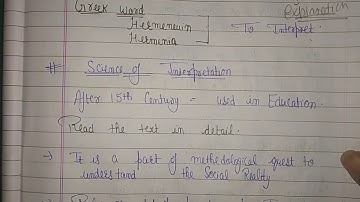 Greek Word
explanation
Hermeneuin
Herminia
To Interpret.
# Science of Interpretation
After 15th Century - used in Education.
Read the text in detail.
→ It is a part of methodological quest to
understand the Social Reality